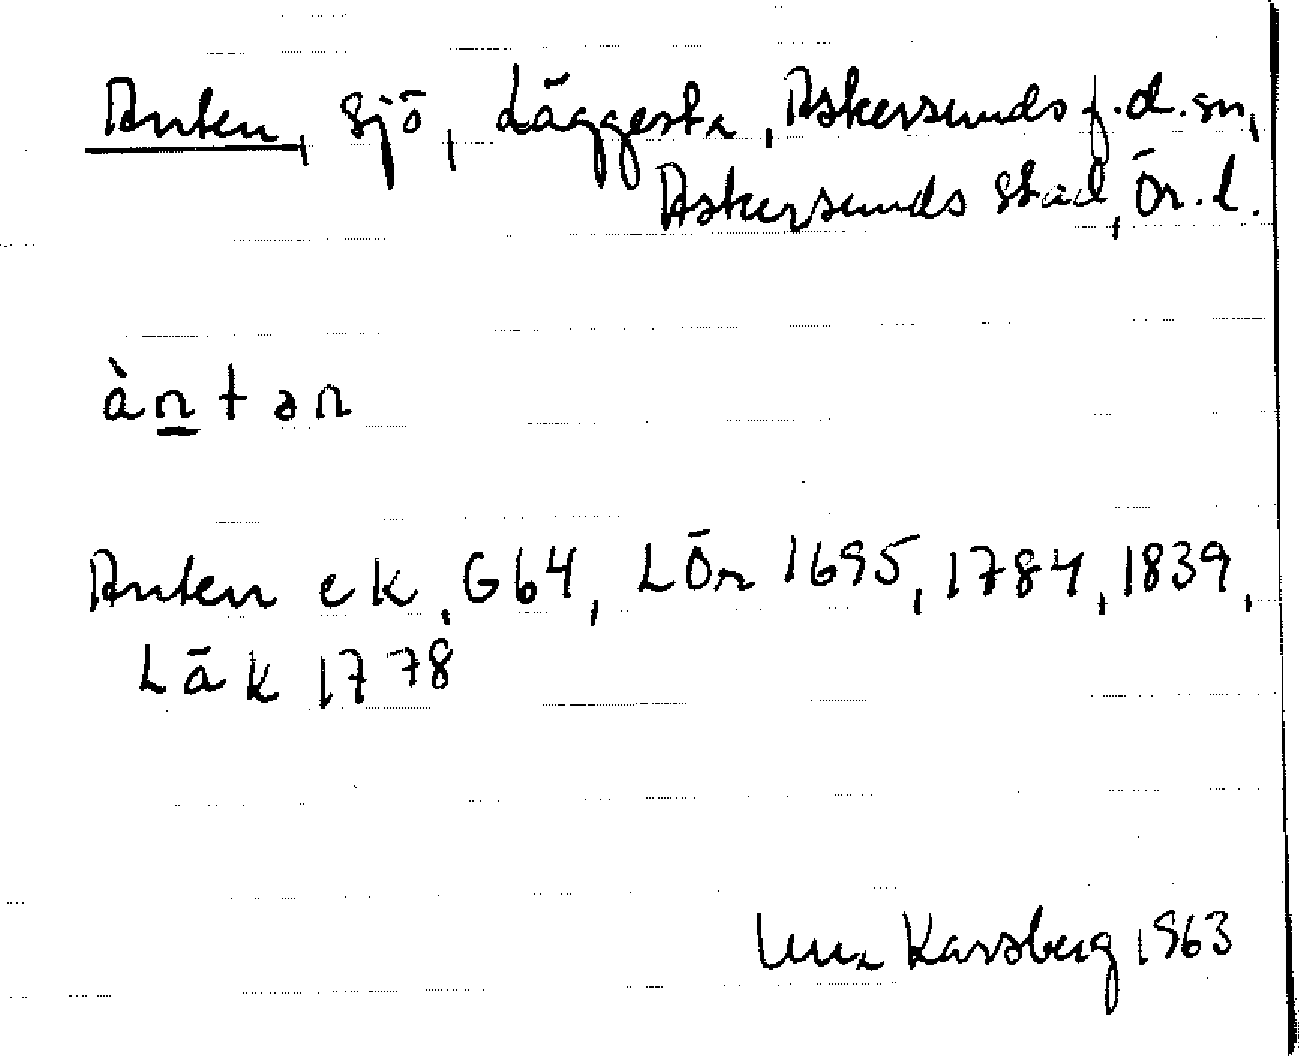 Anten, sjö, Läggesta, Askersunds f.d. sn,
Askersunds stad, Ör. l.
àn̲tən
Anten ek, G 64, LÖr 1695, 1784, 1839,
Läk 1778
Karsberg 1963